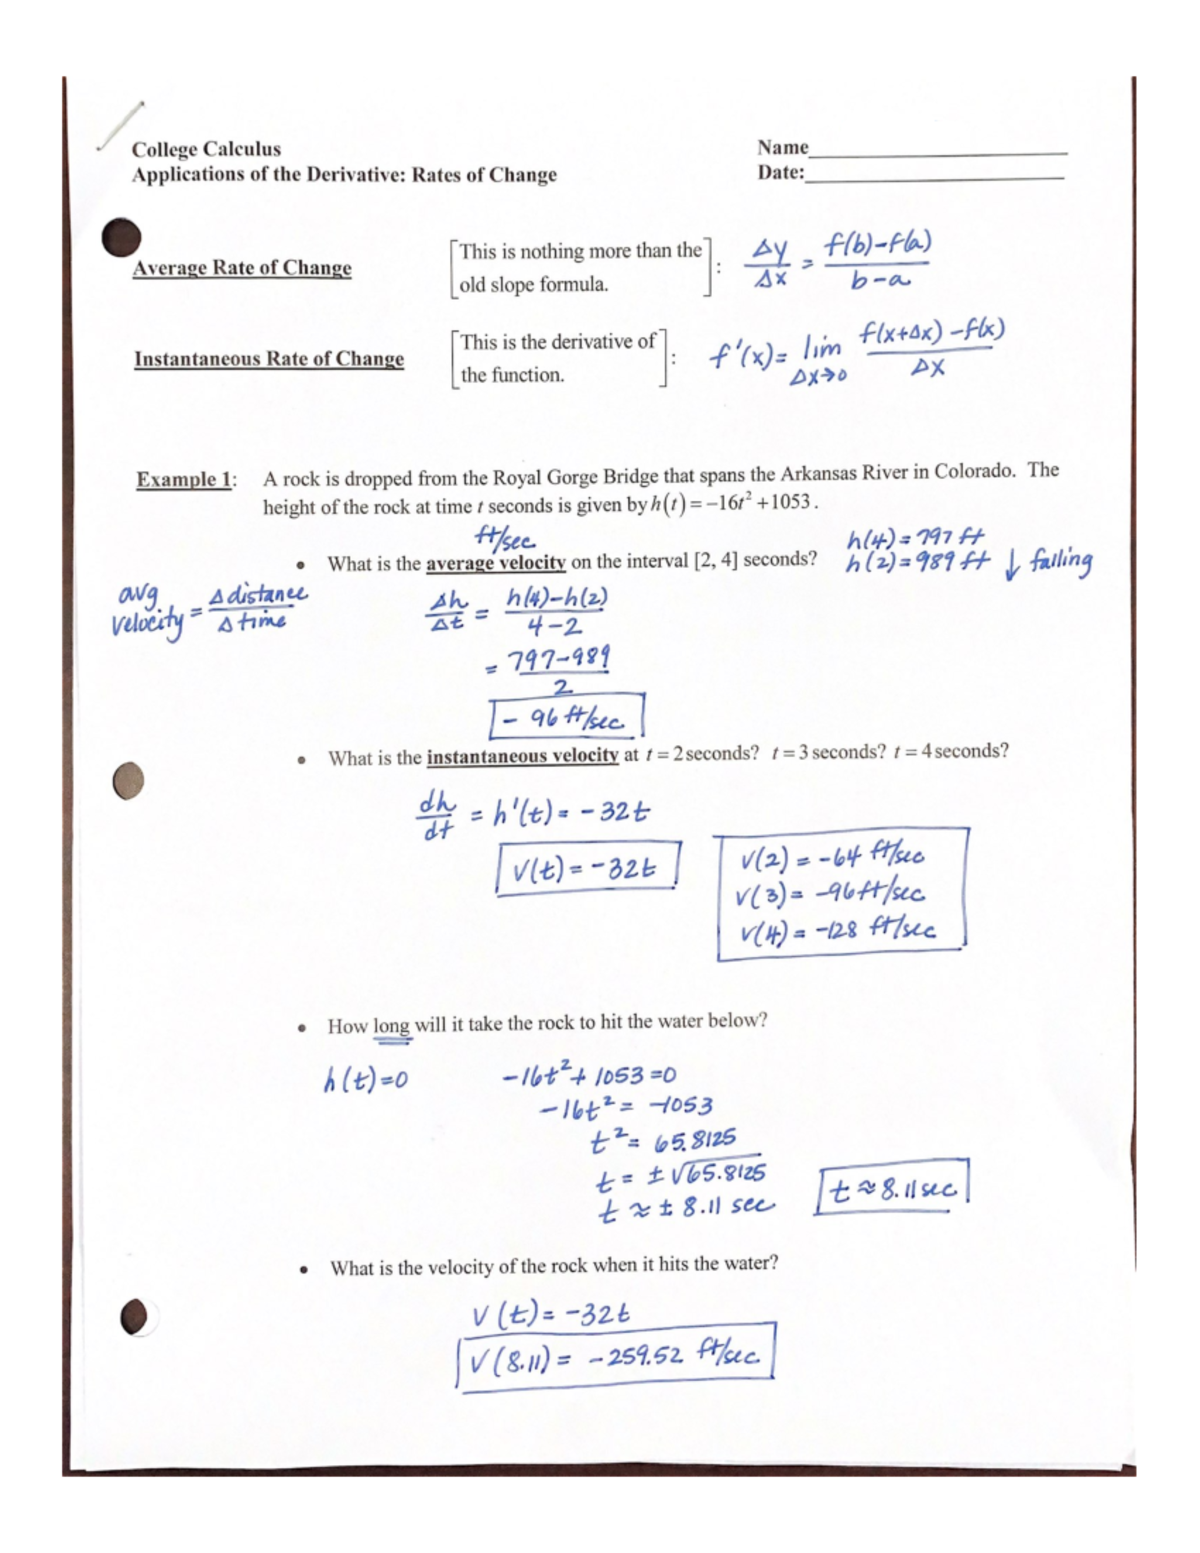 College Calculus
Applications of the Derivative: Rates of Change
Name
Date:
Average Rate of Change
[This is nothing more than the
old slope formula.]: Δy/Δx = f(b)-f(a)/b-a
Instantaneous Rate of Change
[This is the derivative of
the function.]: f'(x)= lim Δx→0 f(x+Δx)-f(x)/Δx
Example 1: A rock is dropped from the Royal Gorge Bridge that spans the Arkansas River in Colorado. The
height of the rock at time t seconds is given by h(t)=-16t²+1053.
ft/sec
• What is the average velocity on the interval [2, 4] seconds?
h(4)=797 ft
h(2)=989 ft ↓ falling
avg velocity = Δdistance/Δtime
Δh/Δt = h(4)-h(2)/4-2
= 797-989/2
- 96 ft/sec
• What is the instantaneous velocity at t = 2 seconds? t = 3 seconds? t = 4 seconds?
dh/dt = h'(t)= -32t
v(t)= -32t
v(2)= -64 ft/sec
v(3)= -96ft/sec
v(4)= -128 ft/sec
• How long will it take the rock to hit the water below?
h(t)=0
-16t²+ 1053=0
-16t²= -1053
t²= 65.8125
t= ±√65.8125
t ≈ ± 8.11 sec
t ≈ 8.11 sec
• What is the velocity of the rock when it hits the water?
v(t)= -32t
v(8.11)= -259.52 ft/sec